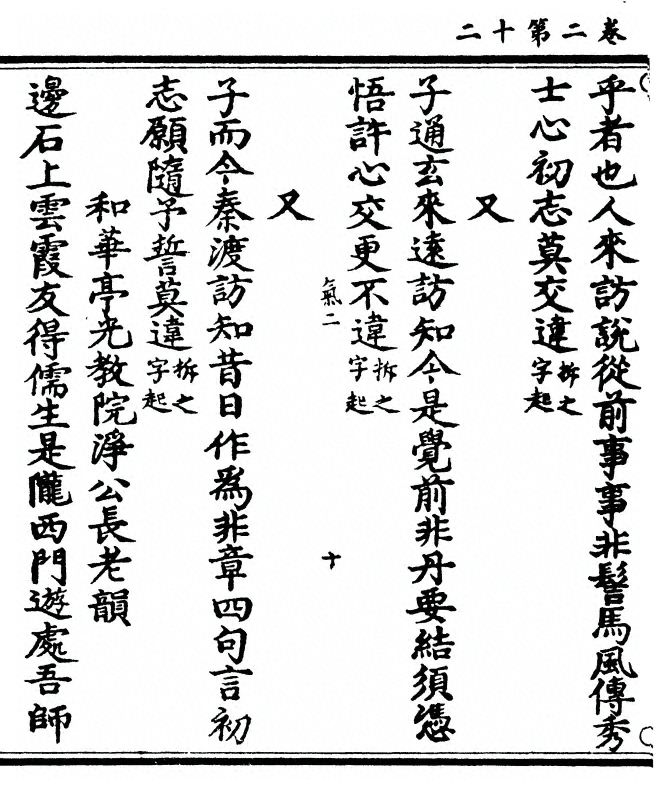 卷二第十二
乎者也人來訪說從前事事非髻馬風傳秀
士心初志莫交違拆之字起
又
子通玄來遠訪知今是覺前非丹要結須憑
悟許心交更不違拆之字起
氣二 十
又
子而今秦渡訪知昔日作爲非章四句言初
志願隨予誓莫違拆之字起
和華亭光教院淨公長老韻
邊石上雲霞友得儒生是隴西門遊處吾師